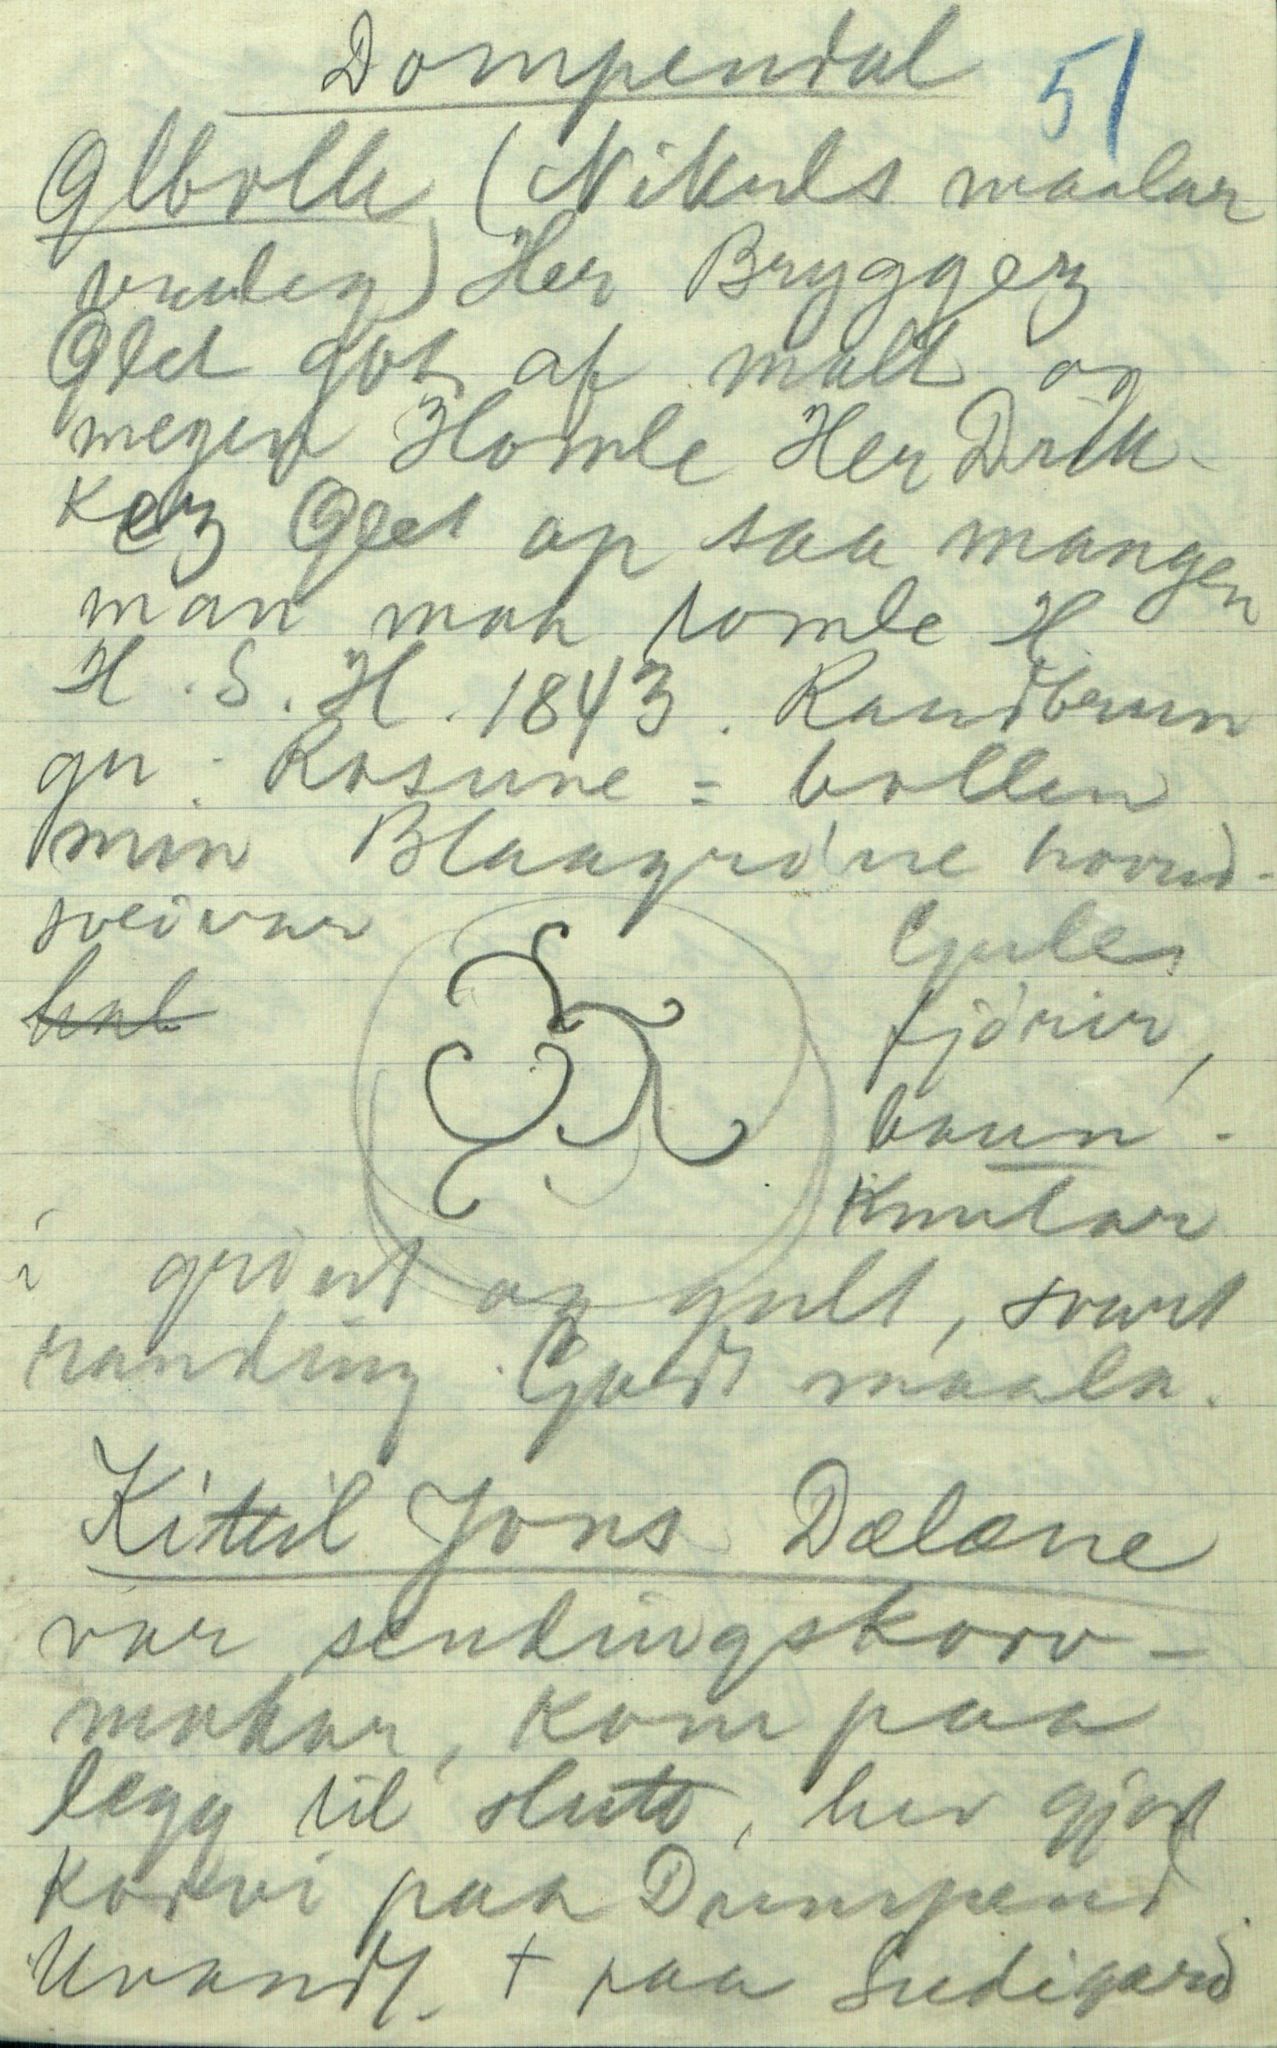 Dompendal 51
Ølbolle (Nikuls maalar
veleg) Her Brygges
Ølet got af malt og
megen Homle Her Drik-
kes Ølet op saa mangen
man maa tomle H
H. S. H. 1843. Randbrun
gr. Rosune = bollen
min Blaagrøne hovud-
sveivar
Gules
fjórir,
baun-
knutar
i grönt og gult, svart
randing. Godt maala.
Kittil Jons Dælæne
var sendingskorv-
makar, kom paa
legg til slutt, hev gjort
korvi paa Dumpend.
Uvandt. + paa Sudigard